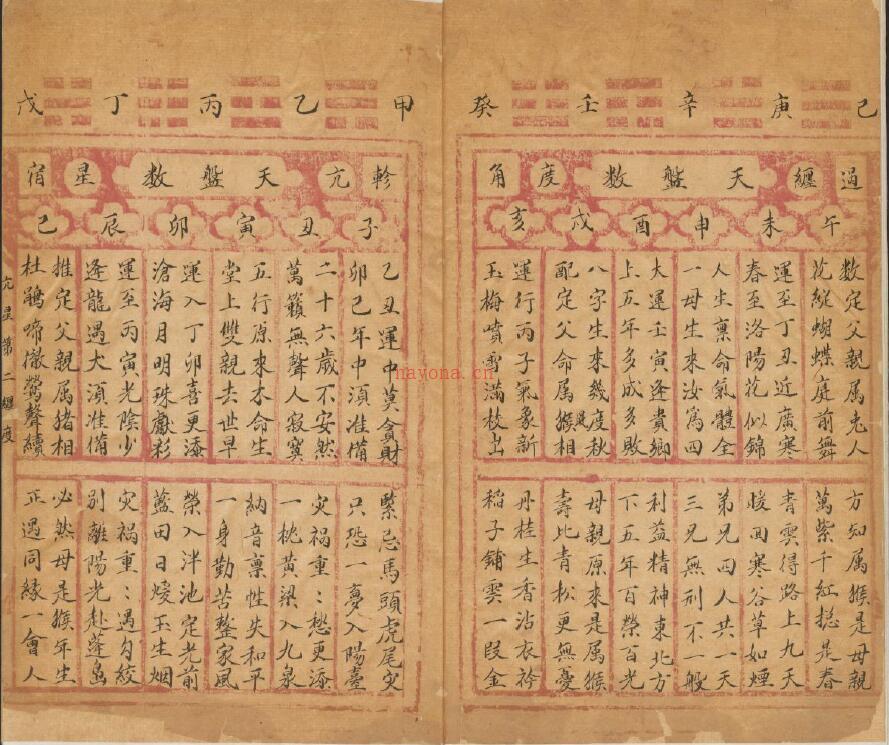 己 庚 辛 壬 癸
過纏 天盤數 度角
午 未 申 酉 戌 亥
數定父親属老人
花縱蝴蝶庭前舞
運至丁丑近廣寒
春至洛陽花似錦
人生禀命氣體全
一母生來汝為四
大運壬寅逢貴鄉
上五年多成多敗
八字生來幾度秋
配定父命属猴相
是
運行丙子氣象新
玉梅噴雪滿枝出
方知属猴是母親
萬紫千紅捴是春
青雲得路上九天
暖回寒谷草如煙
弟兄四人共一天
三兄無刑不一般
利益精神東北方
下五年百榮百光
母親原來是属猴
壽比青松更無憂
丹桂生香沾衣衿
稻子鋪雲一段金
甲 乙 丙 丁 戊
軫亢 天盤數 星宿
子 丑 寅 卯 辰 巳
乙丑運中莫貪財
卯巳年中須准備
二十六歲不安然
萬籟無聲人寂寞
五行原來木命生
堂上雙親去世早
運入丁卯喜更添
滄海月明珠獻彩
運至丙寅光陰少
逢龍遇犬須准備
推定父親属猪相
杜鵑啼撤鶯聲續
緊忌馬頭虎尾灾
只恐一夢入陽臺
灾禍重:愁更添
一枕黄粱入九泉
納音禀性失和平
一身勤苦整家風
榮入泮池定光前
藍田日煖玉生烟
灾禍重:遇勾絞
别離陽光赴蓬島
必然母是猴年生
正遇同縁一會人
亢星第二纏度
nayona.cn